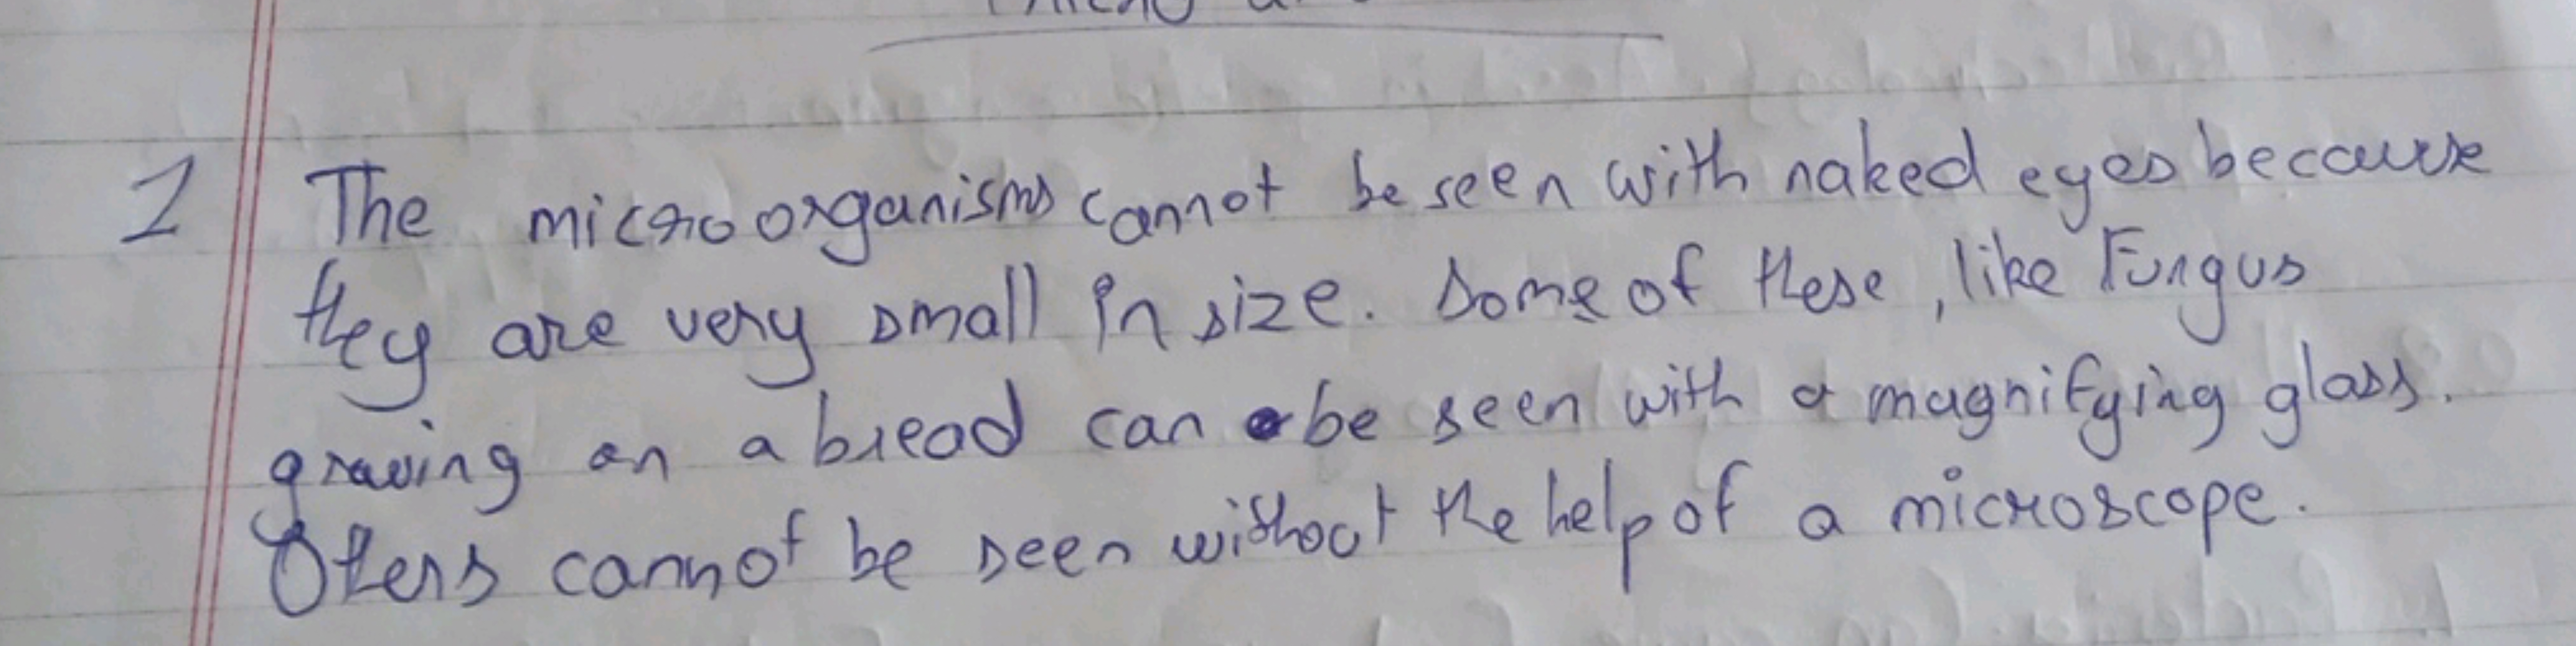 1 The microorganisms cannot be seen with naked eyes because
they are very small in size. Some of these, like Fungus
growing on a bread can be seen with a magnifying glass.
Others cannot be seen without the help of a microscope.